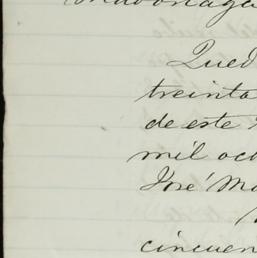 Qued
treinta
de este
mil oc
José M
cincuen